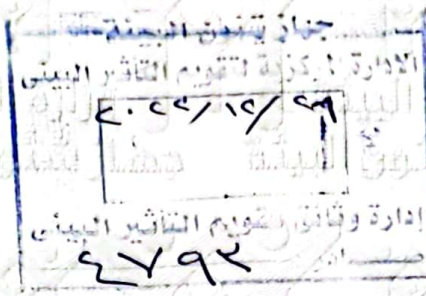 جهاز شئون البيئة
الادارة المركزية لتقويم التأثير البيئى
٢٠٢٢/١٢/٢٩
إدارة وثائق تقويم التأثير البيئى
٤٧٩٢